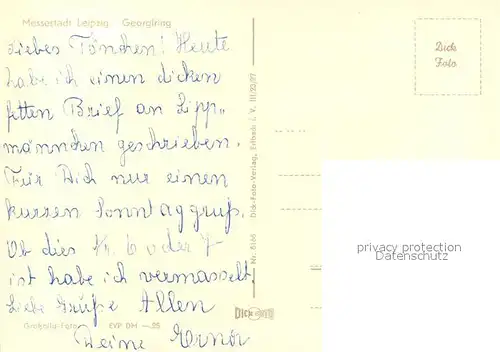 Messestadt Leipzig Georgiring
Liebes Tönchen! Heute
habe ich einen dicken
fetten Brief an Lipp-
männchen geschrieben.
Für Dich nur einen
kurzen Sonntaggruß.
Ob dies Nr. 6 oder 7
ist habe ich vermasselt.
Liebe Grüße Allen
Deine
Großolla-Foto EVP DM -.25
DICK FOTO
Nr. 6166 Dick-Foto-Verlag, Erlbach i. V. III/23/27
Dick
Foto
privacy protection
Datenschutz